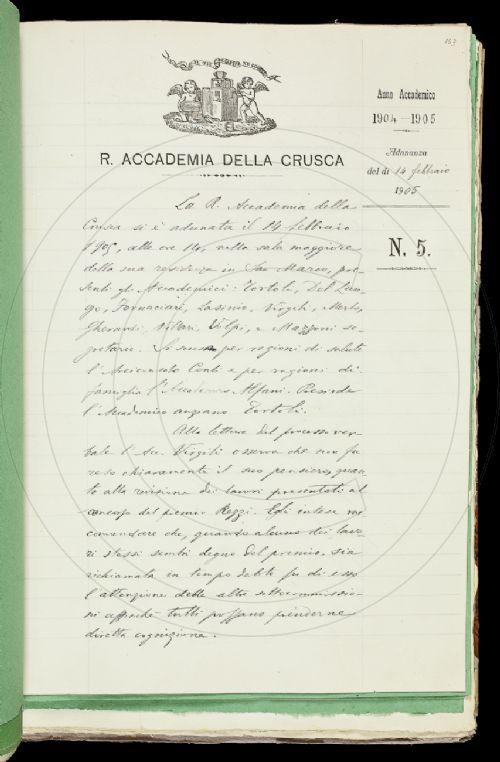 157
R. ACCADEMIA DELLA CRUSCA
Anno Accademico
1904-1905
Adunanza
del dì 14 febbraio
1905
N. 5.
La R. Accademia della
Crusca si è adunata il 14 febbraio
1905, alle ore 14, nella sala maggiore
della sua residenza in San Marco, pre-
senti gli Accademici: Tortoli, Del Lun-
go, Fornaciari, Lasinio, Virgili,
Gherardi, Villari, Volpi, e Mazzoni se-
gretario. Si scusa per ragioni di salute
l'Arciconsolo Conti e per ragioni di
famiglia l'Accademico Alfani. Presiede
l'Accademico anziano Tortoli.
Alla lettura del processo ver-
bale l'Acc. Virgili osserva che non fu
reso chiaramente il suo pensiero, quan-
to alla revisione dei lavori presentati al
concorso del premio Rezzi. Egli intese rac-
comandare che, quando alcuno dei lavo-
ri stessi sembri degno del premio, sia
richiamata in tempo debito su di esso
l'attenzione delle altre sottocommissio-
ni affinchè tutti possano prenderne
diretta cognizione.